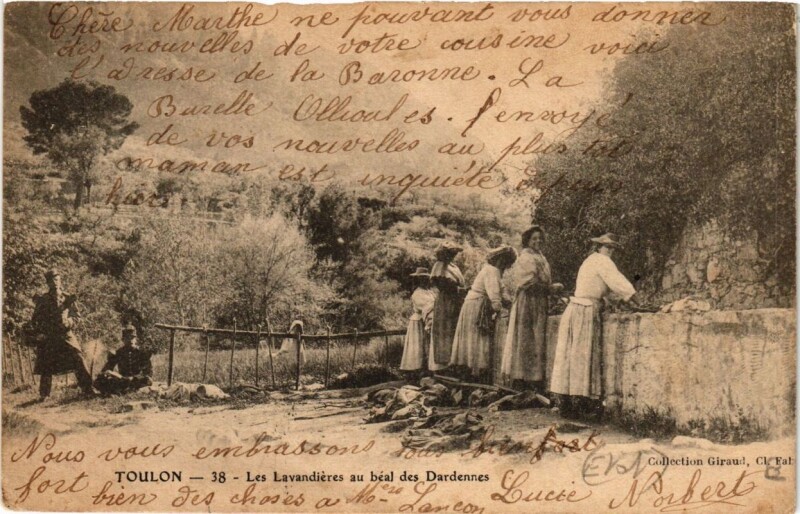 Chère Marthe ne pouvant vous donner
des nouvelles de votre cousine voici
l'adresse de la Baronne. La
Burelle Ollioules. J'envoyé
de vos nouvelles au plus tôt
maman est inquiète depuis
hier.
Nous vous embrassons tous bien fort
fort
TOULON — 38 - Les Lavandières au béal des Dardennes
Collection Giraud, Cl. Fab
bien des choses a Lançon Lucie Norbert